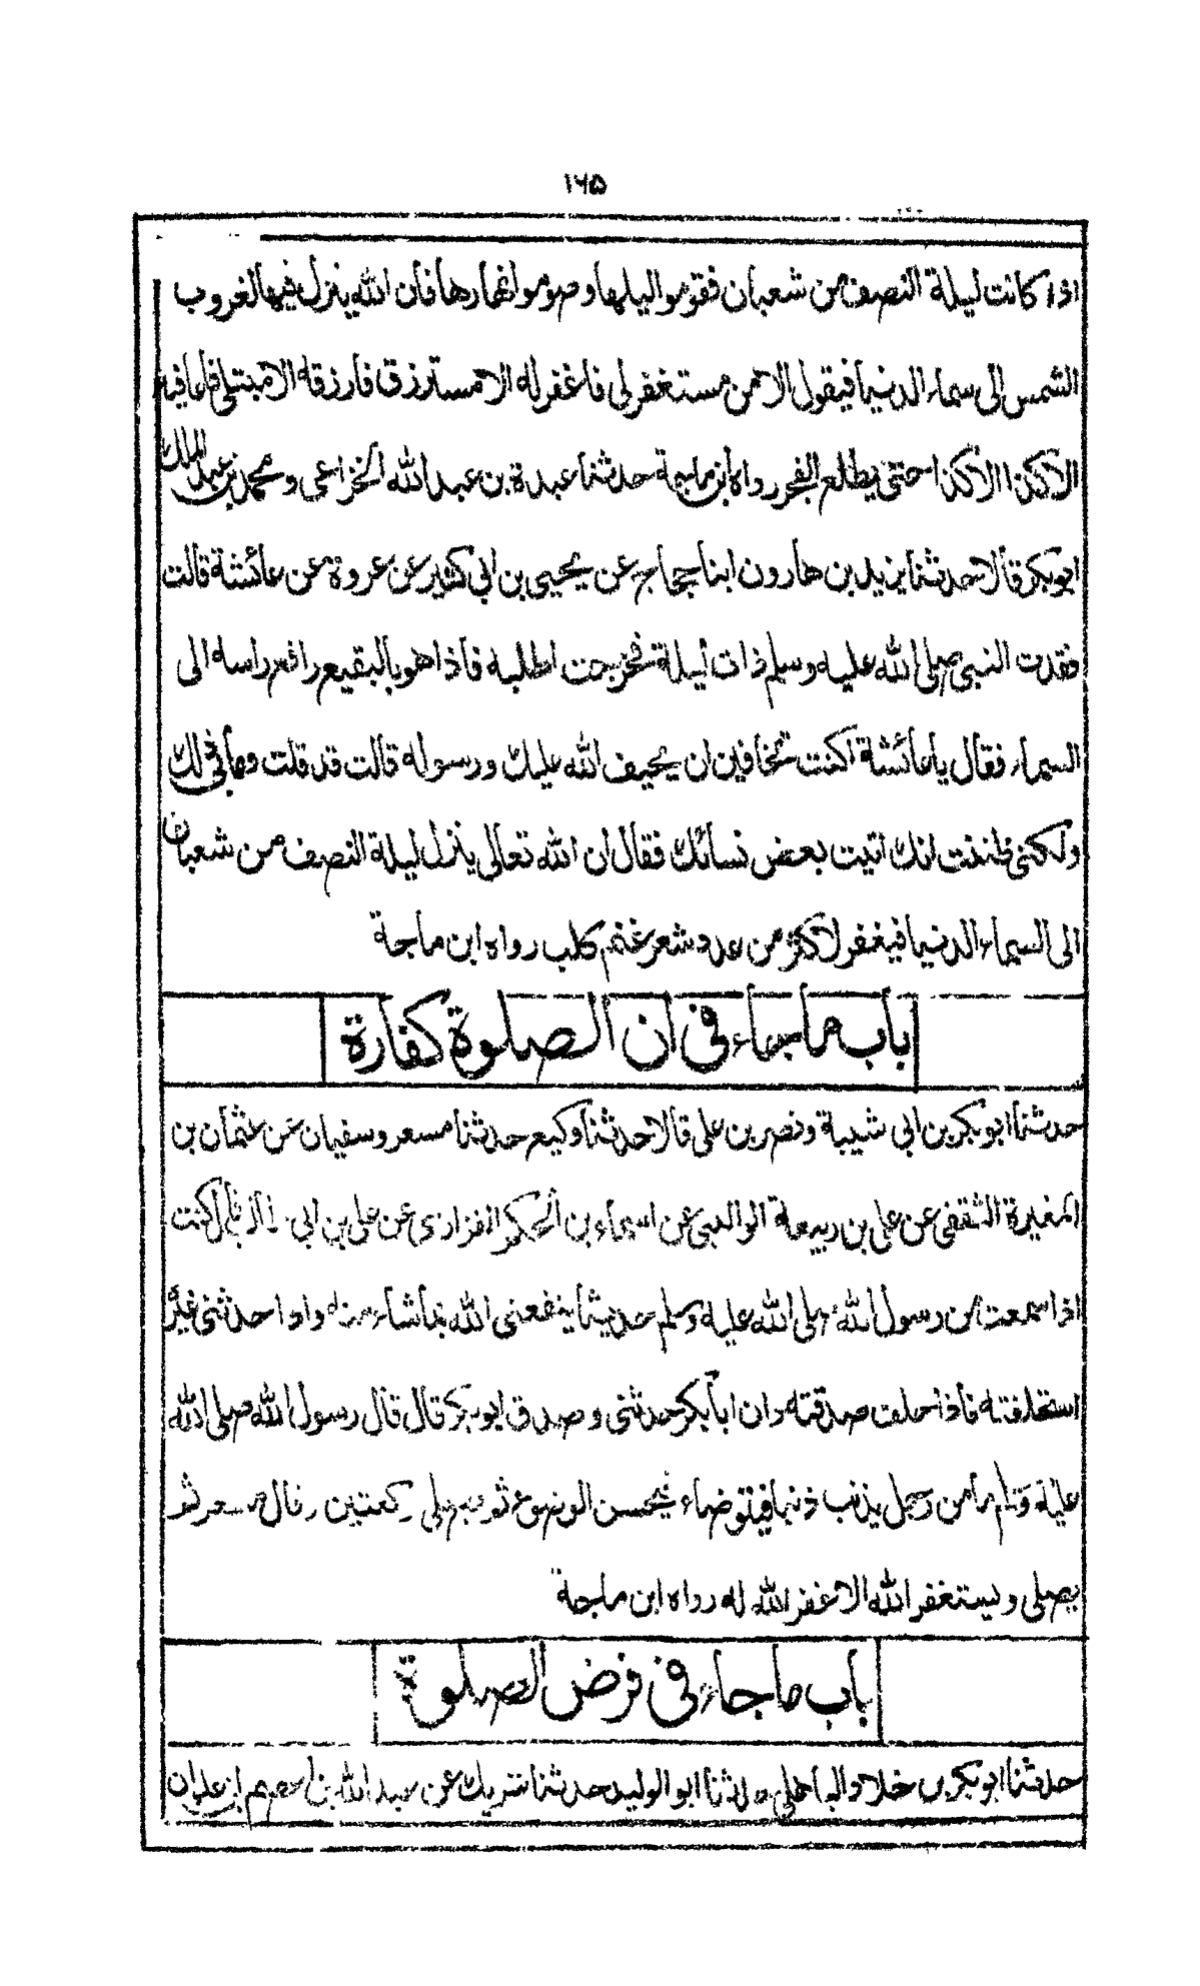 ۱۶۵
اذا كانت ليلة النصف من شعبان فقوموا ليلها وصوموا نهارها فان الله ينزل فيها لغروب
الشمس الى سماء الدنيا فيقول الا من مستغفر لى فاغفر له الا مسترزق فارزقه الا مبتلى فاعافيه
الا كذا الا كذا حتى يطلع الفجر رواه ابن ماجة حدثنا عبدة بن عبد الله الخزاعى ومحمد بن عبد الملك
ابو بكر قالا حدثنا يزيد بن هارون ابنا حجاج عن يحيى بن ابى كثير عن عروة عن عائشة قالت
فقدت النبى صلى الله عليه وسلم ذات ليلة فخرجت اطلبه فاذا هو بالبقيع رافع راسه الى
السماء فقال يا عائشة اكنت تخافين ان يحيف الله عليك ورسوله قالت قد قلت وما بى ذلك
ولكنى ظننت انك اتيت بعض نسائك فقال ان الله تعالى ينزل ليلة النصف من شعبان
الى السماء الدنيا فيغفر لاكثر من عدد شعر غنم كلب رواه ابن ماجة
باب ما جاء فى ان الصلوة كفارة
حدثنا ابو بكر بن ابى شيبة ونصر بن على قالا حدثنا وكيع حدثنا مسعر وسفيان عن عثمان بن
المغيرة الثقفى عن على بن ربيعة الوالبى عن اسماء بن الحكم الفزارى عن على بن ابى كنت
اذا سمعت من رسول الله صلى الله عليه وسلم حديثا ينفعنى الله بما شاء منه واذا حدثنى غيره
استحلفته فاذا حلف صدقته وان ابا بكر حدثنى وصدق ابو بكر قال قال رسول الله صلى الله
عليه وسلم ما من رجل يذنب ذنبا فيتوضاء فيحسن الوضوء ثم يصلى ركعتين وقال مسعر ثم
يصلى ويستغفر الله الا غفر الله له رواه ابن ماجة
باب ما جاء فى فرض الصلوة
حدثنا ابو بكر بن خلاد الباهلى حدثنا ابو الوليد حدثنا شريك عن عبد الله بن عصم ابى علوان